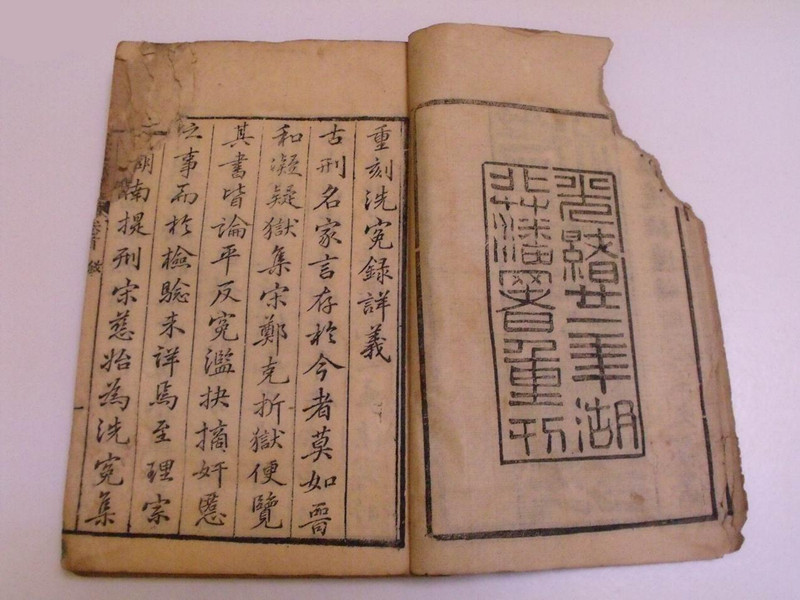 光緒廿二年湖
北藩署重刊
重刻洗冤錄詳義
古刑名家言存於今者莫如晉
和凝疑獄集宋鄭克折獄便覽
其書皆論平反冤濫抉摘奸慝
之事而於檢驗未詳焉至理宗
湖南提刑宋慈始為洗冤集
卷首 敘